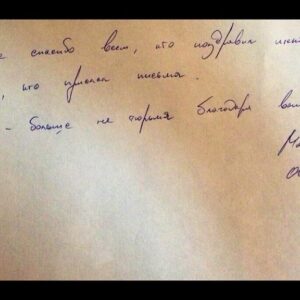 спасибо всем, кто поздравил меня
, кто прислал письма.
– больше не тюрьма благодаря вам